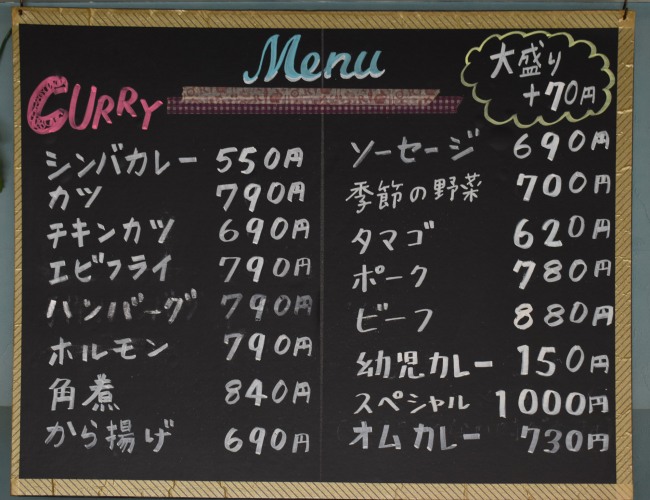 Menu
CURRY
大盛り
+70円
シンバカレー 550円
カツ 790円
チキンカツ 690円
エビフライ 790円
ハンバーグ 790円
ホルモン 790円
角煮 840円
から揚げ 690円
ソーセージ 690円
季節の野菜 700円
タマゴ 620円
ポーク 780円
ビーフ 880円
幼児カレー 150円
スペシャル 1000円
オムカレー 730円